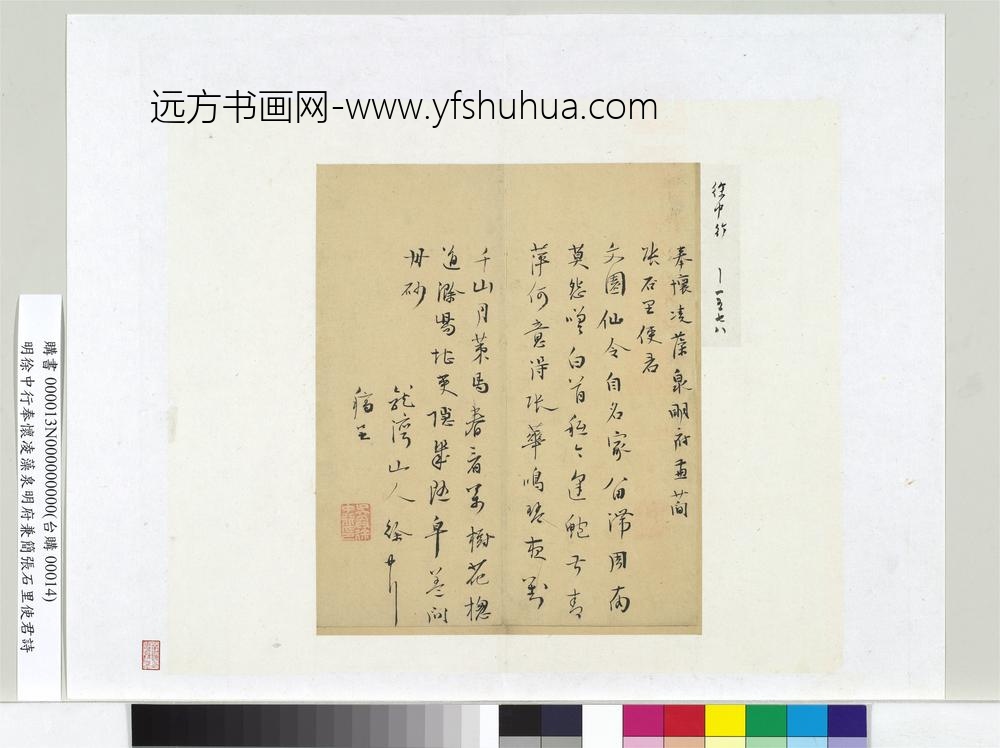 远方书画网-www.yfshuhua.com
徐中行
一五七八
奉懷凌藻泉明府兼簡
張石里使君
文園仙令自名家伯滯周南
莫怨嗟白首
萍何意得張華鳴琴夜對
千山月策馬春看萬樹花
道
丹砂
龍灣山人徐中行
稿呈
購書 000013N000000000(台購 00014)
明徐中行奉懷凌藻泉明府兼簡張石里使君詩